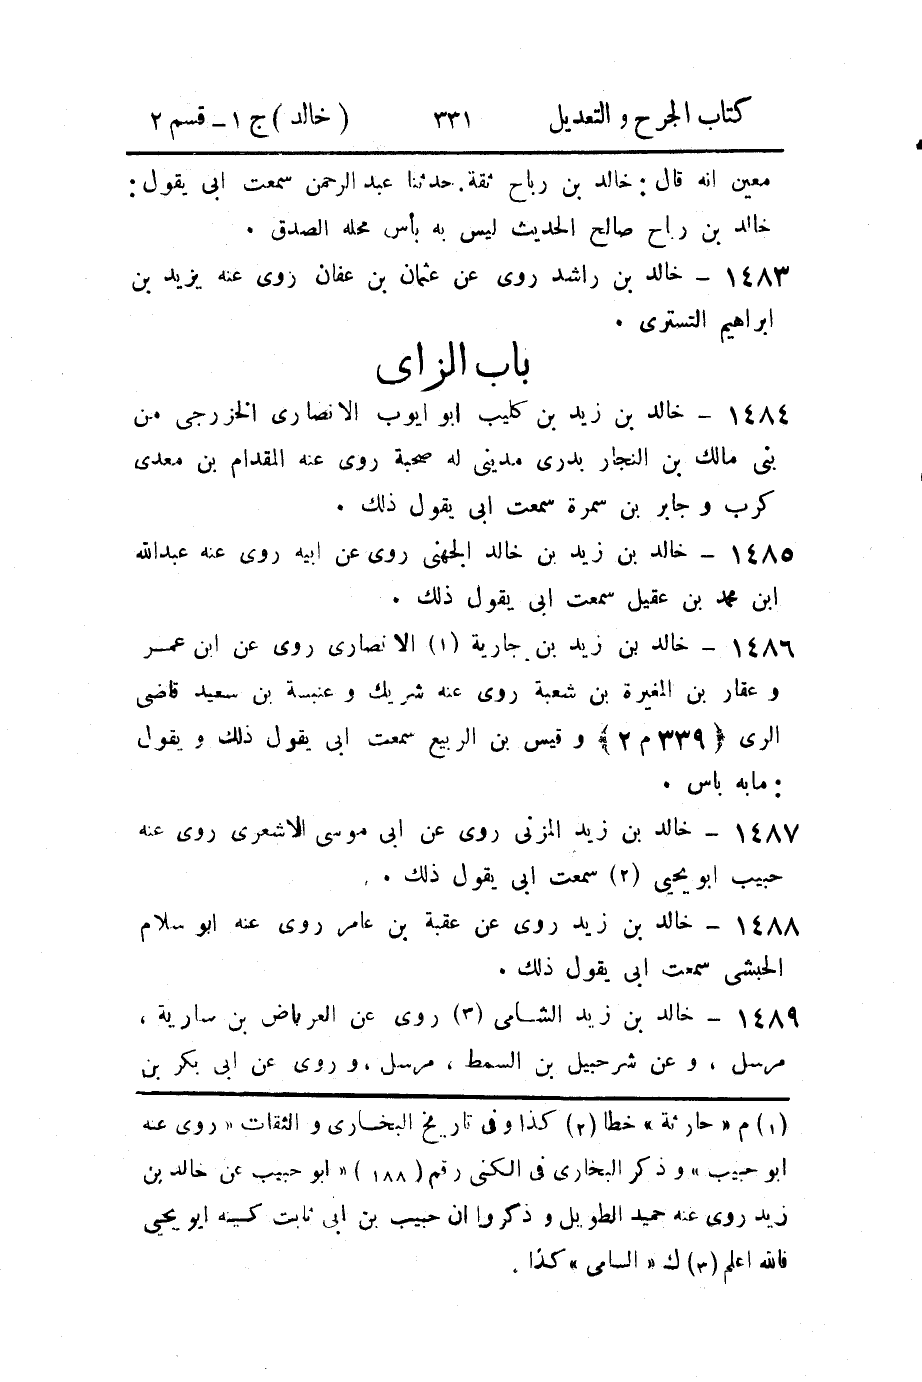 كتاب الجرح و التعديل ٣٣١ ( خالد ) ج ١ ـ قسم ٢
معين انه قال : خالد بن رباح ثقة . حدثنا عبد الرحمن سمعت ابى يقول :
خالد بن رباح صالح الحديث ليس به بأس محله الصدق .
١٤٨٣ - خالد بن راشد روى عن عثمان بن عفان روى عنه يزيد بن
ابراهيم التسترى .
باب الزاى
١٤٨٤ - خالد بن زيد بن كليب ابو ايوب الانصارى الخزرجى من
بنى مالك بن النجار بدرى مدينى له صحبة روى عنه المقدام بن معدى
كرب و جابر بن سمرة سمعت ابى يقول ذلك .
١٤٨٥ - خالد بن زيد بن خالد الجهنى روى عن ابيه روى عنه عبدالله
ابن محمد بن عقيل سمعت ابى يقول ذلك .
١٤٨٦ - خالد بن زيد بن جارية (١) الانصارى روى عن ابن عمر
و عقار بن المغيرة بن شعبة روى عنه شريك و عنبسة بن سعيد قاضى
الرى ﴿ ٣٣٩ م ٢ ﴾ و قيس بن الربيع سمعت ابى يقول ذلك و يقول
: مابه باس .
١٤٨٧ - خالد بن زيد المزنى روى عن ابى موسى الاشعرى روى عنه
حبيب ابو يحيى (٢) سمعت ابى يقول ذلك .
١٤٨٨ - خالد بن زيد روى عن عقبة بن عامر روى عنه ابو سلام
الحبشى سمعت ابى يقول ذلك .
١٤٨٩ - خالد بن زيد الشامى (٣) روى عن العرباض بن سارية ،
مرسل ، و عن شرحبيل بن السمط ، مرسل ، و روى عن ابى بكر بن
(١) م « حارثة » خطا (٢) كذا و فى تاريخ البخارى و الثقات « روى عنه
ابو حبيب » و ذكر البخارى فى الكنى رقم ( ١٨٨ ) « ابو حبيب عن خالد بن
زيد روى عنه حميد الطويل و ذكروا ان حبيب بن ابى ثابت كنيته ابو يحيى
فالله اعلم (٣) ك « السامى » كذا .